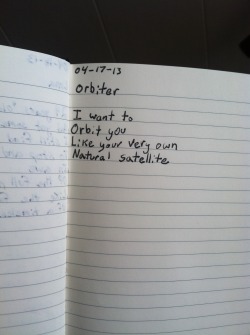 04-17-13
Orbiter
I want to
Orbit you
Like your very own
Natural satellite